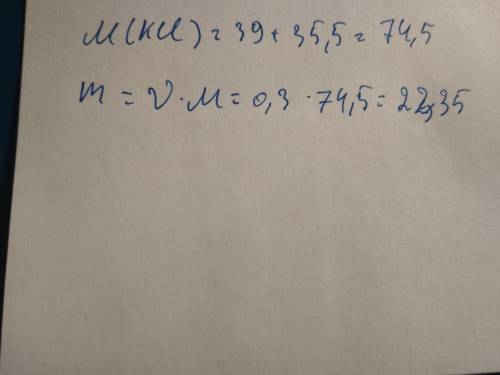 M(KCl) = 39 + 35,5 = 74,5
m = ν · M = 0,3 · 74,5 = 22,35